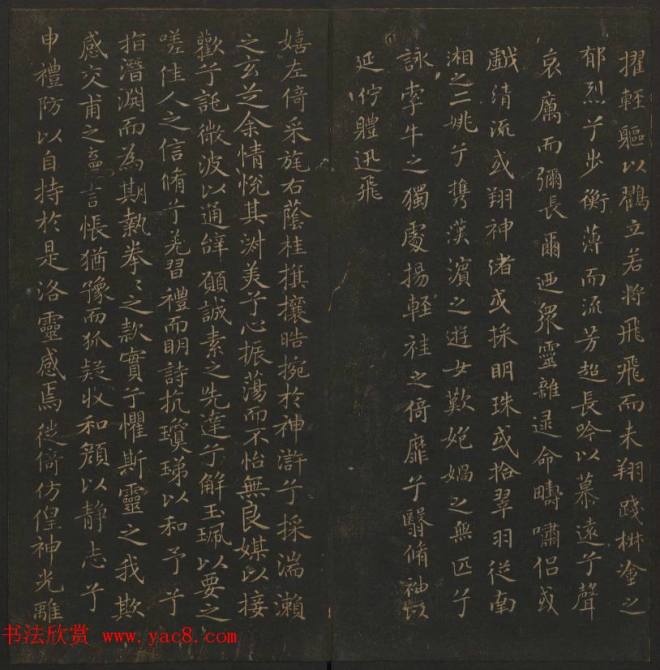 擢輕軀以鶴立若将飛飛而未翔踐椒塗之
郁烈兮步衡薄而流芳超長吟以慕遠兮聲
哀厲而彌長爾迺衆靈雜遝命疇嘯侣或
戲清流或翔神渚或採明珠或拾翠羽從南
湘之二姚兮携漢濱之遊女歎匏媧之無匹兮
詠牽牛之獨處揚輕袿之倚靡兮翳脩袖以
延佇體迅飛
嬉左倚采旄右蔭桂旗攘皓捥於神滸兮採湍瀨
之玄芝余情悅其淑美兮心振蕩而不怡無良媒以接
歡兮託微波以通辭願誠素之先達兮解玉珮以要之
嗟佳人之信脩兮羌習禮而明詩抗瓊珶以和予兮
指潛淵而為期執拳〻之款實兮懼斯靈之我欺
感交甫之棄言悵猶豫而狐疑收和顔以静志兮
申禮防以自持於是洛靈感焉徙倚仿偟神光離
书法欣赏 www.yac8.com